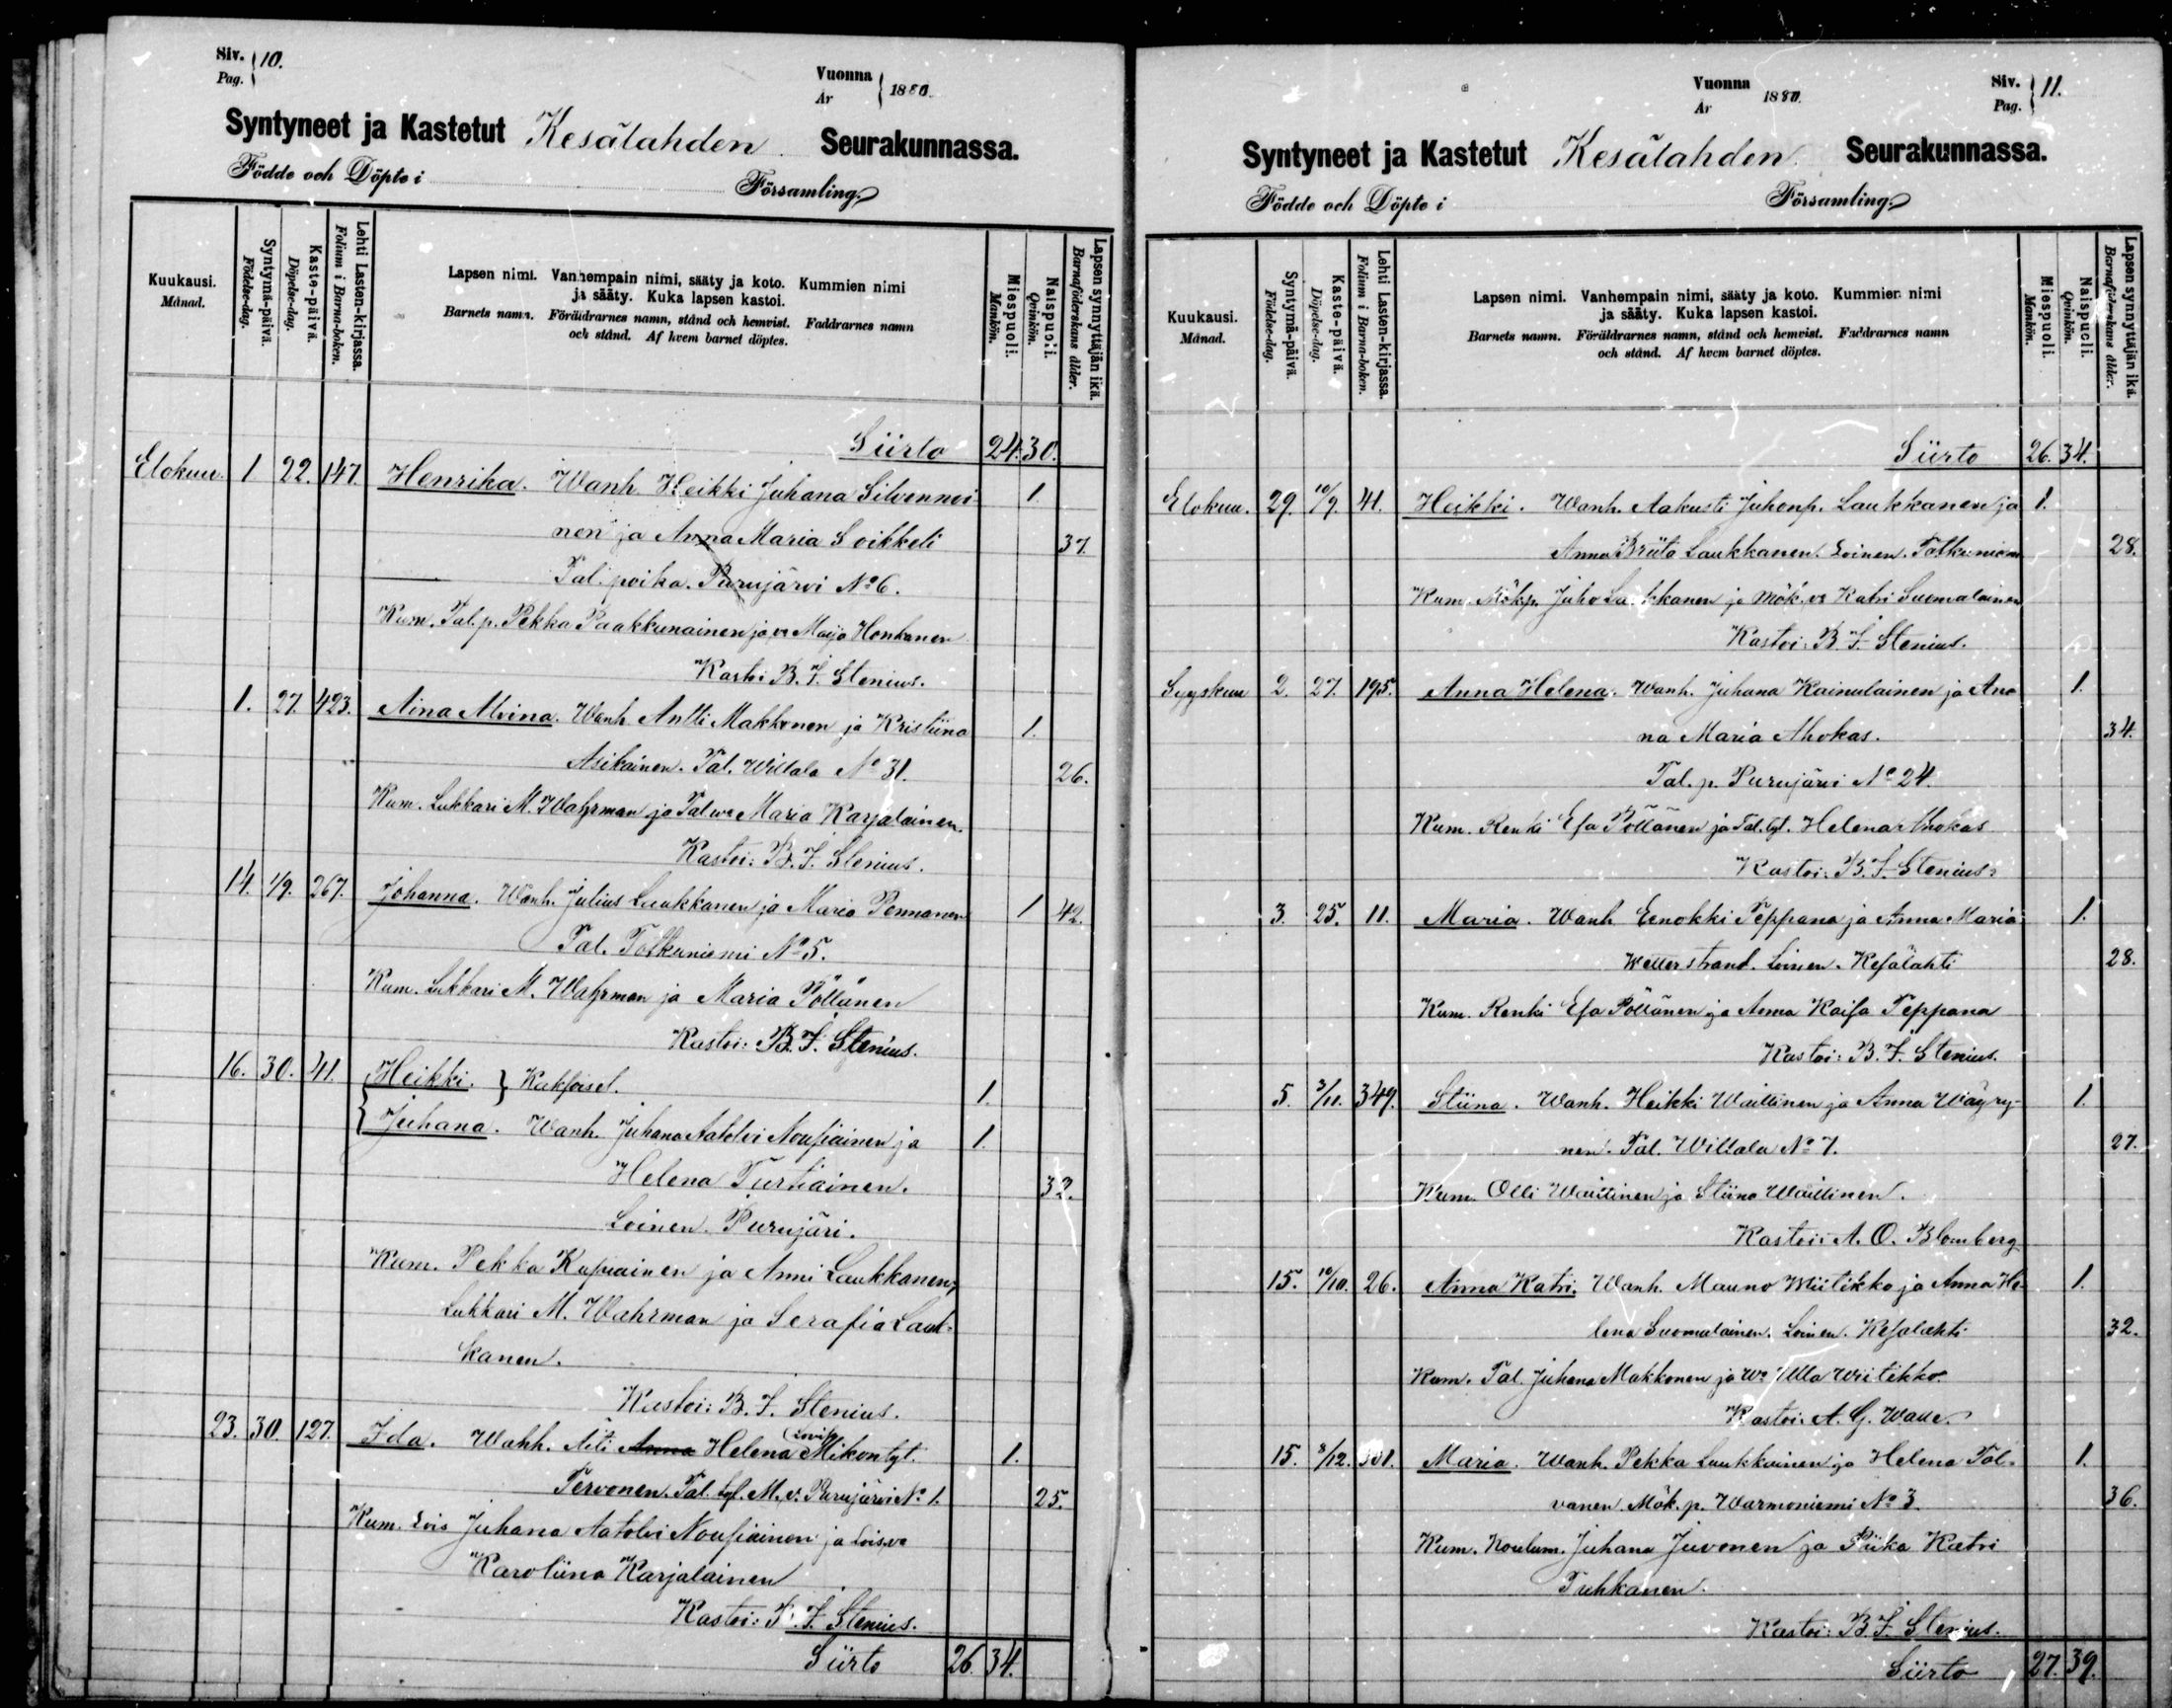 Siv. 10.
Pag.
Vuonna 1880.
År
Syntyneet ja Kastetut Kesälahden Seurakunnassa.
Födde och Döpte i Församling.
Kuukausi.
Månad.
Syntymä-päivä.
Födelse-dag.
Kaste-päivä.
Döpelse-dag.
Lehti Lasten-kirjassa.
Folium i Barna-boken.
Lapsen nimi. Vanhempain nimi, sääty ja koto. Kummien nimi
ja sääty. Kuka lapsen kastoi.
Barnets namn. Föräldrarnes namn, stånd och hemvist. Faddrarnes namn
och stånd. Af hvem barnet döptes.
Miespuoli.
Mankön.
Naispuoli.
Qvinkön.
Lapsen synnyttäjän ikä.
Barnaföderskans ålder.
Siirto 24. 30.
Elokuu. 1 22. 147. Henrika. Wanh. Heikki Juhana Silvennoi 1.
nen ja Anna Maria Soikkeli 37.
Tal. poika. Purujärvi No 6.
Kum. Tal. p. Pekka Paakkunainen ja vo Maija Honkanen
Kastoi B. F. Stenius.
1. 27. 423. Aina Alvina. Wanh. Antti Makkonen ja Kristiina 1.
Asikainen. Tal. Villala No 31. 26.
Kum. Lukkari M. Wahrman ja Tal. vo Maria Karjalainen.
Kastoi: B. F. Stenius.
14. 1/9. 267. Johanna. Wanh. Julius Laukkanen ja Maria Pennanen 1 42.
Tal. Totkuniemi No 5.
Kum. Lukkari M. Wahrman ja Maria Pöllänen
Kastoi: B. F. Stenius.
16. 30. 41. Heikki. } Kaksoiset. 1.
Juhana. Wanh. Juhana Aatolvi Nousiainen ja 1.
Helena Turtiainen. 32.
Loinen. Purujäri.
Kum. Pekka Kupiainen ja Anni Laukkanen,
Lukkari M. Wahrman ja Serafia Lauk-
kanen.
Kastoi: B. F. Stenius.
23. 30. 127. Ida. Wanh. Äiti Anna Helena Lovisa Mikontyt. 1.
Tervonen. Tal. tyt. M. v. Purujärvi No 1. 25.
Kum. Lois Juhana Aatolvi Nousiainen ja Lois. vo
Karoliina Karjalainen
Kastoi: B. F. Stenius.
Siirto 26. 34.
Vuonna 1880.
År
Siv. 11.
Pag.
Syntyneet ja Kastetut Kesälahden Seurakunnassa.
Födde och Döpte i Församling.
Kuukausi.
Månad.
Syntymä-päivä.
Födelse-dag.
Kaste-päivä.
Döpelse-dag.
Lehti Lasten-kirjassa.
Folium i Barna-boken.
Lapsen nimi. Vanhempain nimi, sääty ja koto. Kummien nimi
ja sääty. Kuka lapsen kastoi.
Barnets namn. Föräldrarnes namn, stånd och hemvist. Faddrarnes namn
och stånd. Af hvem barnet döptes.
Miespuoli.
Mankön.
Naispuoli.
Qvinkön.
Lapsen synnyttäjän ikä.
Barnaföderskans ålder.
Siirto 26. 34.
Elokuu. 29. 10/9. 41. Heikki. Wanh. Aakusti Juhonp. Laukkanen ja 1.
Anna Briita Laukkanen. Loinen. Totkuniemi 28.
Kum. Mökp. Juho Laukkanen ja Mök. vo Katri Suomalainen
Kastoi: B. F. Stenius.
Syyskuu 2. 27. 195. Anna Helena. Wanh. Juhana Kainulainen ja An- 1.
na Maria Ahokas. 34.
Tal. p. Purujärvi No 24.
Kum. Renki Esa Pöllänen ja Tal. tyt. Helena Ahokas
Kastoi: B. F. Stenius.
3. 25. 11. Maria. Wanh. Eenokki Teppana ja Anna Maria 1.
Wetterstrand. Loinen. Kesälahti 28.
Kum. Renki Esa Pöllänen ja Anna Kaisa Teppana
Kastoi: B. F. Stenius.
5. 3/10. 349. Stiina. Wanh. Heikki Waittinen ja Anna Wäyry- 1.
nen. Tal. Villala No 7. 27.
Kum. Olli Waittinen ja Stiina Waittinen.
Kastoi: A. O. Blomberg
15. 10/10. 26. Anna Katri. Wanh. Mauno Wiitikko ja Anna He- 1.
lena Suomalainen. Loinen. Kesälahti 32.
Kum. Tal. Juhana Makkonen ja vo Ulla Wiitikko.
Kastoi: A. G. Walle.
15. 8/12. 301. Maria. Wanh. Pekka Laukkainen ja Helena Tol- 1.
vanen. Mök. p. Warmoniemi No 3. 36.
Kum. Koulum. Juhana Juvonen ja Piika Katri
Tuhkanen.
Kastoi: B. F. Stenius.
Siirto 27. 39.